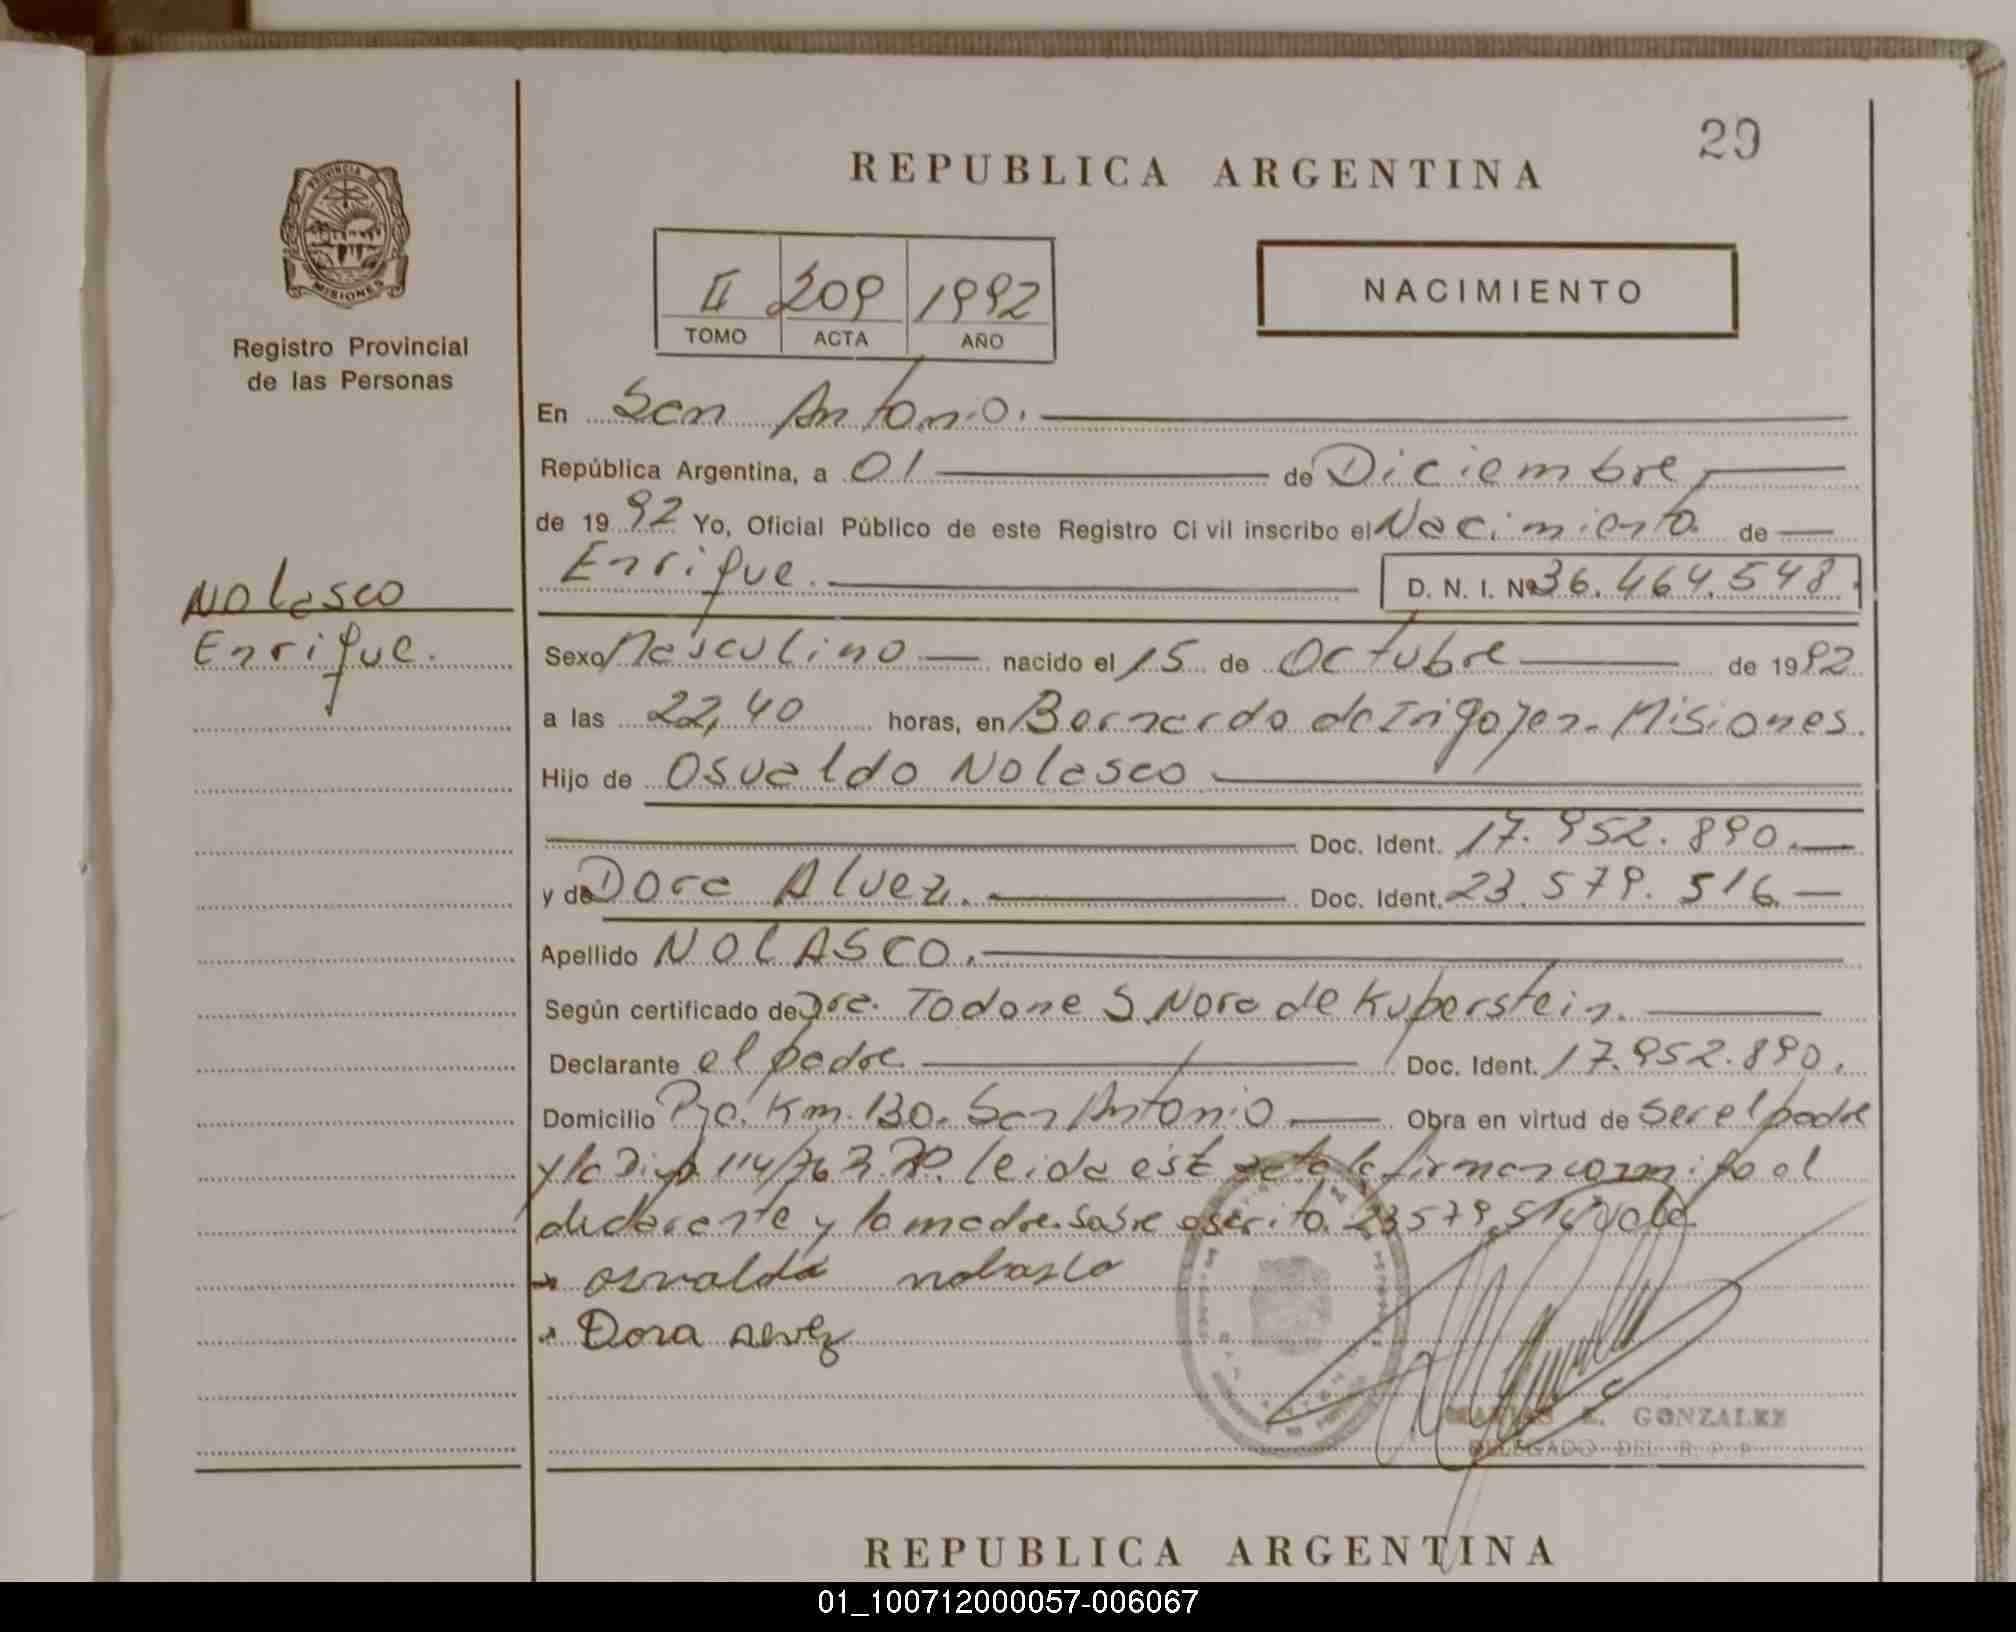 29
REPUBLICA ARGENTINA
PROVINCIA DE
MISIONES
Registro Provincial
de las Personas
II 209 1992
TOMO ACTA AÑO
NACIMIENTO
En San Antonio.
República Argentina, a 01 de Diciembre
de 1992 Yo, Oficial Público de este Registro Civil inscribo el Nacimiento de
Enrique. D. N. I. Nº 36.464.548.
Nolasco
Enrique.
Sexo Masculino nacido el 15 de Octubre de 1992
a las 22,40 horas, en Bernardo de Irigoyen - Misiones.
Hijo de Osvaldo Nolasco
Doc. Ident. 17.952.890.
y de Dora Alvez. Doc. Ident. 23.579.516
Apellido NOLASCO.
Según certificado de Dra. Todone S. Nora de Kuperstein.
Declarante el padre Doc. Ident. 17.952.890.
Domicilio Pje. Km. 130. San Antonio Obra en virtud de ser el padre
y la 114/76 leida esta acta la firman conmigo el
declarante y la madre. sobre escrito. 23579.516 vale.
osvaldo nolasco
Dora alvez
E. GONZALEZ
DELEGADO DEL R. P. P.
REPUBLICA ARGENTINA
01_100712000057-006067